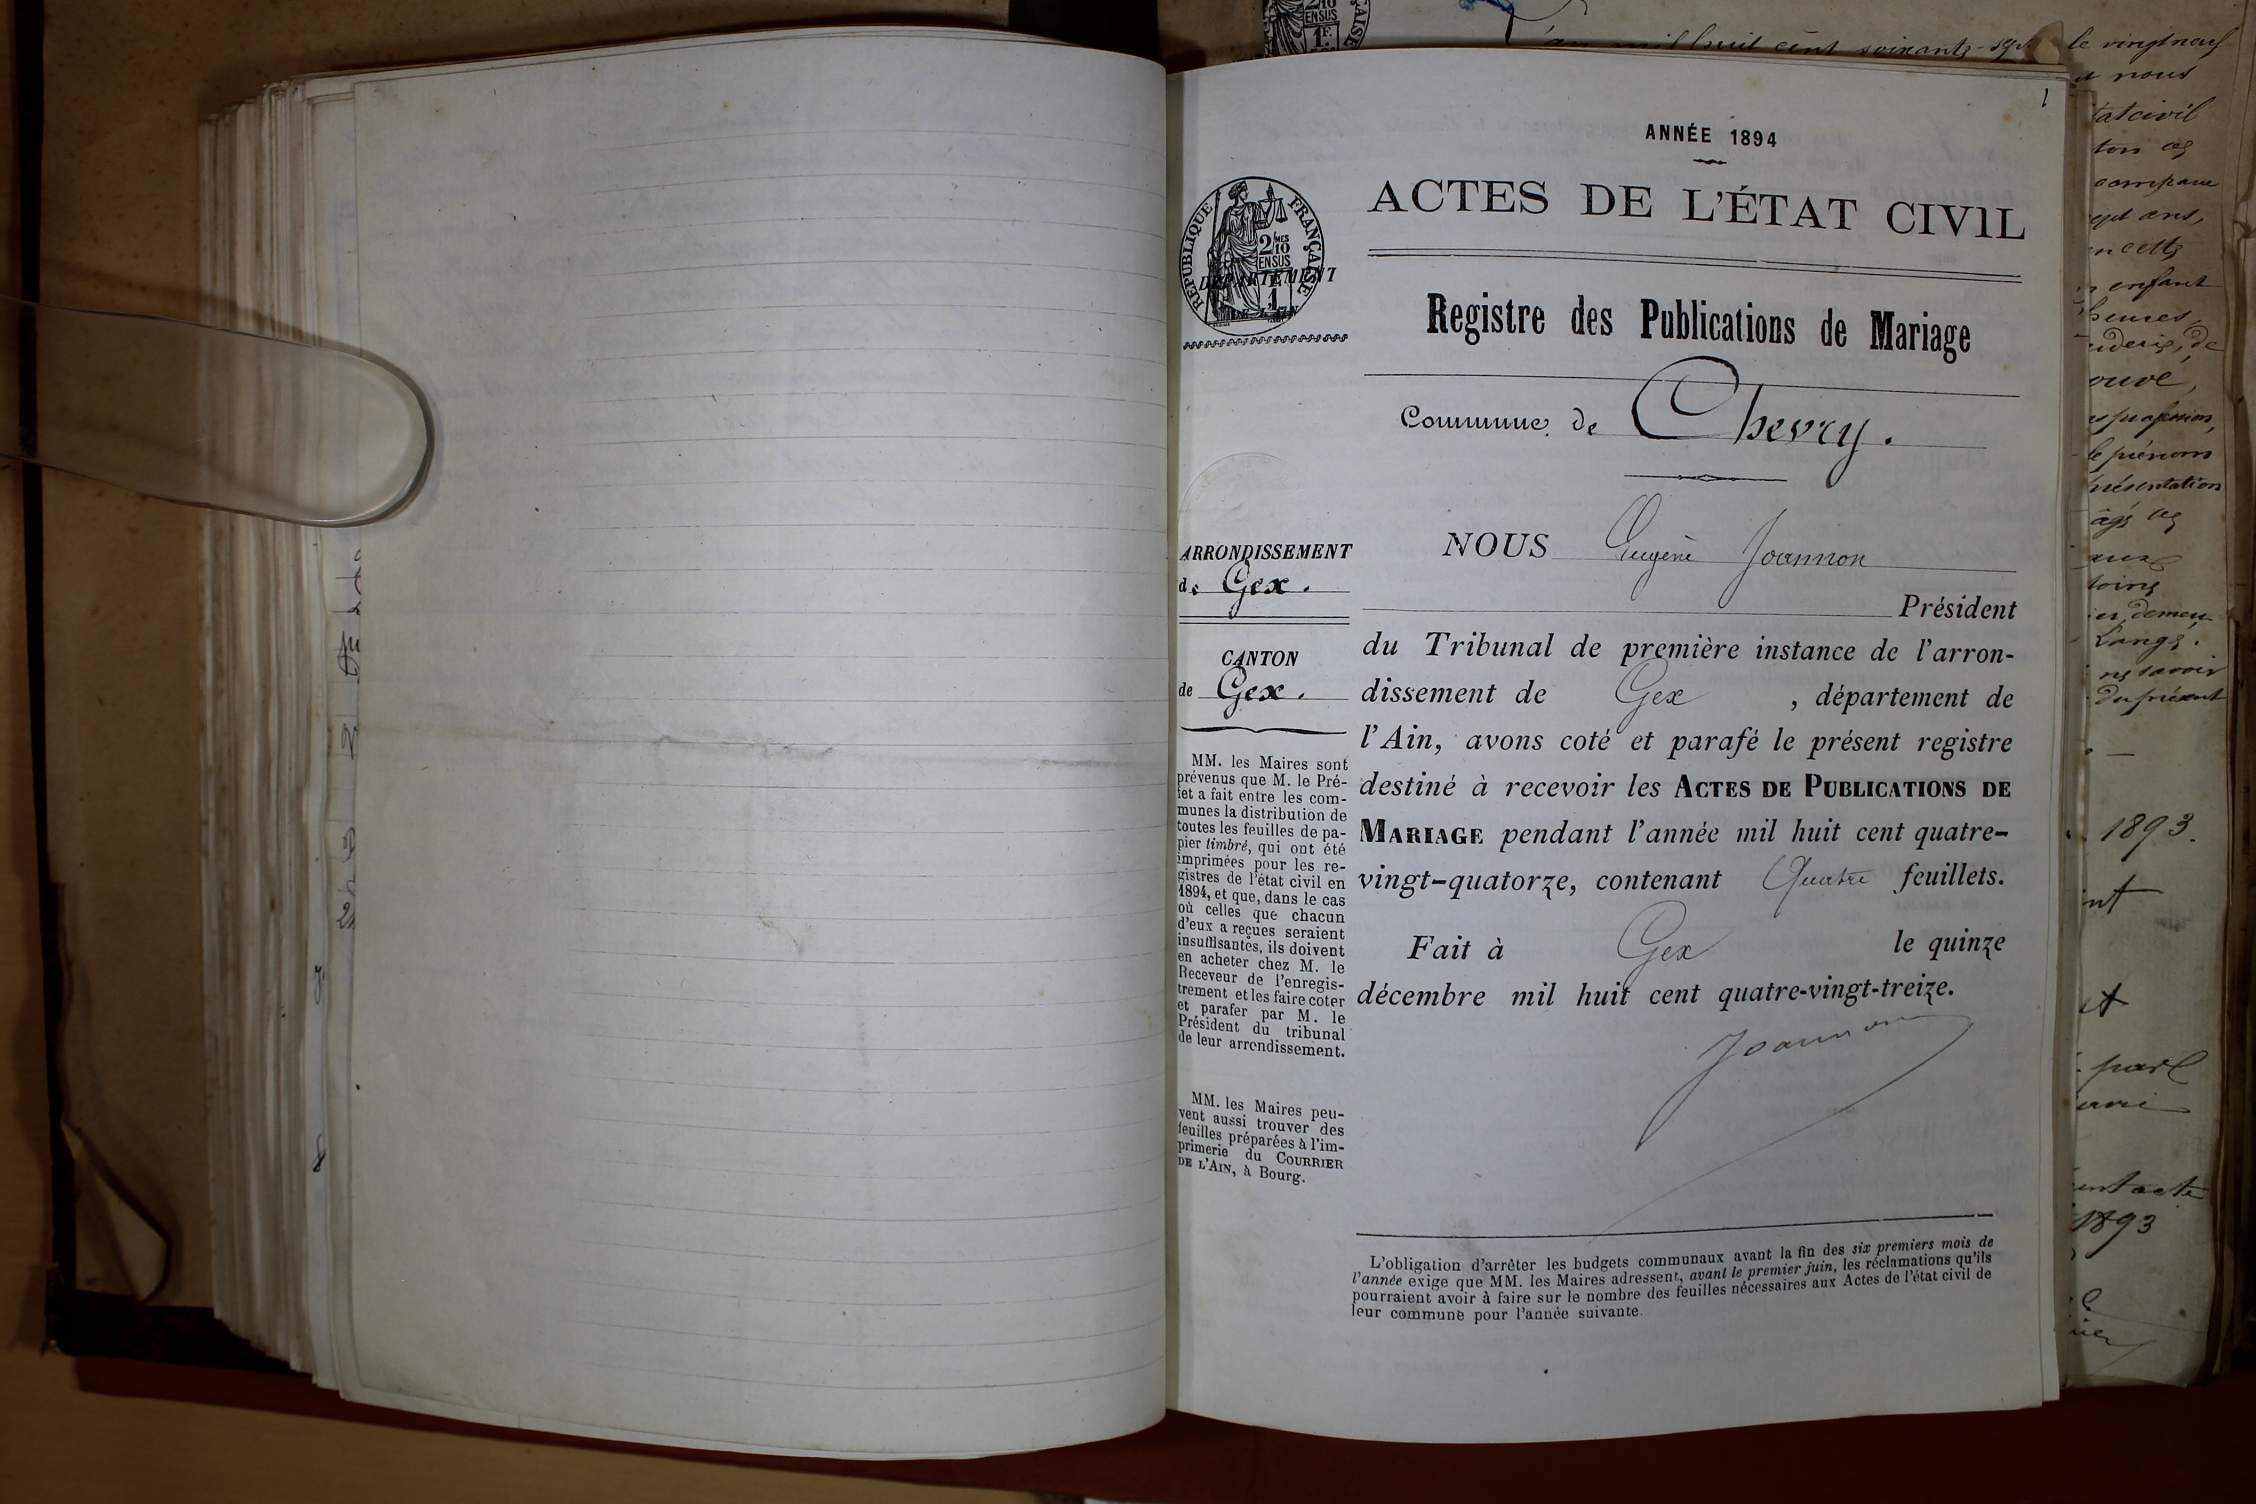 1
ANNÉE 1894
ACTES DE L'ÉTAT CIVIL
RÉPUBLIQUE FRANÇAISE
2/10 MES
EN SUS
1F
DÉPARTEMENT
DE L'AIN
Registre des Publications de Mariage
Commune de Chevry.
ARRONDISSEMENT
de Gex.
CANTON
de Gex.
MM. les Maires sont
prévenus que M. le Pré-
fet a fait entre les com-
munes la distribution de
toutes les feuilles de pa-
pier timbré, qui ont été
imprimées pour les re-
gistres de l'état civil en
1894, et que, dans le cas
où celles que chacun
d'eux a reçues seraient
insuffisantes, ils doivent
en acheter chez M. le
Receveur de l'enregis-
trement et les faire coter
et parafer par M. le
Président du tribunal
de leur arrondissement.
MM. les Maires peu-
vent aussi trouver des
feuilles préparées à l'im-
primerie du COURRIER
DE L'AIN, à Bourg.
NOUS Eugène Joannon
Président
du Tribunal de première instance de l'arron-
dissement de Gex , département de
l'Ain, avons coté et parafé le présent registre
destiné à recevoir les ACTES DE PUBLICATIONS DE
MARIAGE pendant l'année mil huit cent quatre-
vingt-quatorze, contenant Quatre feuillets.
Fait à Gex le quinze
décembre mil huit cent quatre-vingt-treize.
Joannon
L'obligation d'arrêter les budgets communaux avant la fin des six premiers mois de
l'année exige que MM. les Maires adressent, avant le premier juin, les réclamations qu'ils
pourraient avoir à faire sur le nombre des feuilles nécessaires aux Actes de l'état civil de
leur commune pour l'année suivante.
EN SUS
1F.
l'an mil huit cent soixante-
le vingt neuf
nous
ton
ans,
en cette
enfant
heures,
profession,
le prénom
présentation
demeu-
savoir
du présent
1893.
acte
1893